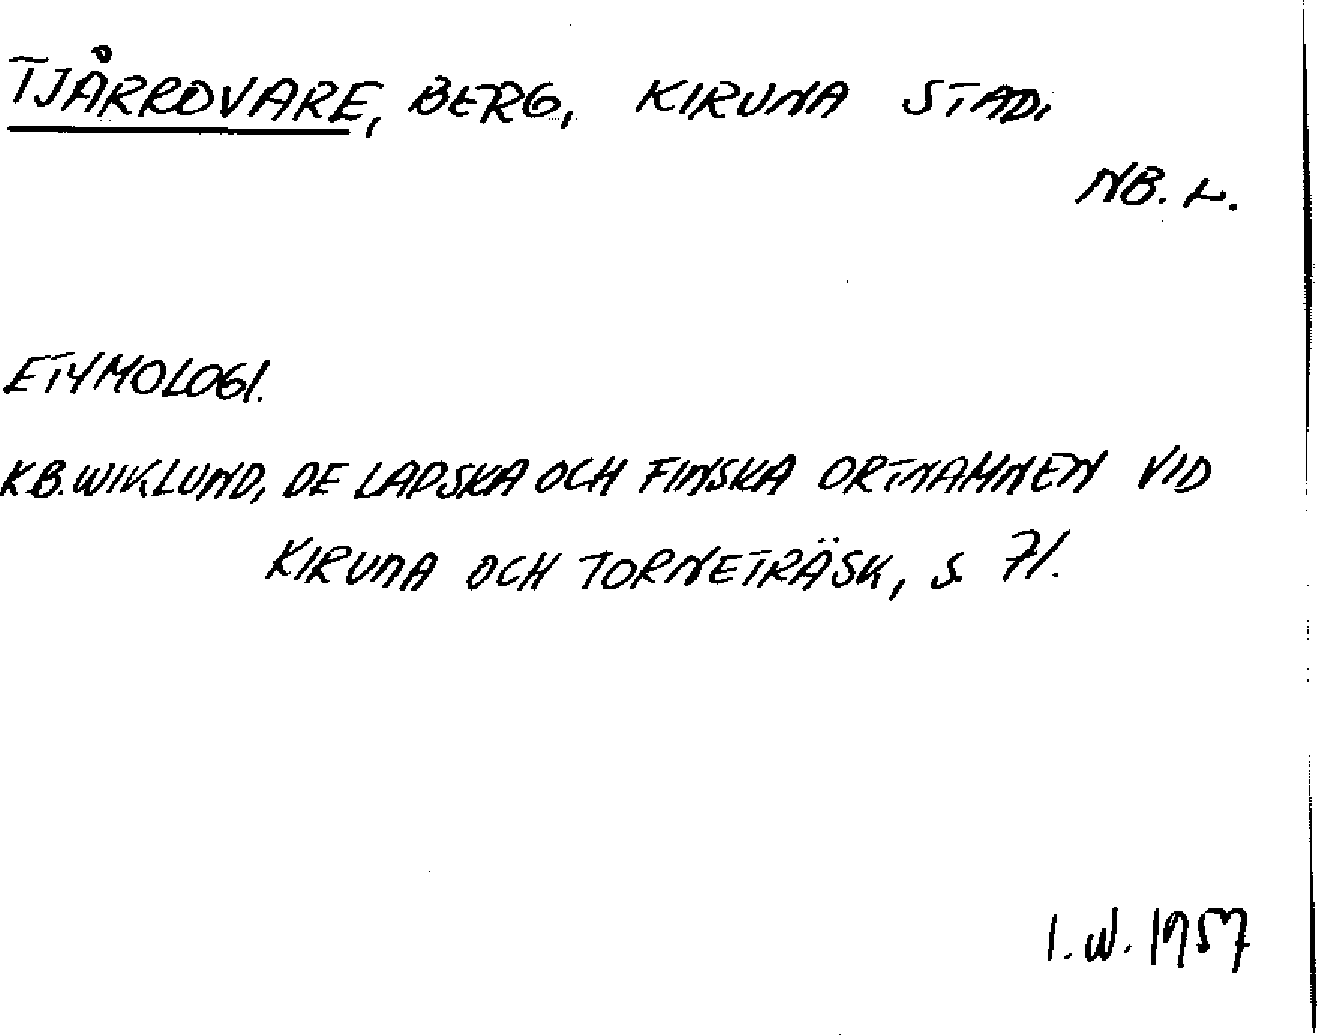 TJÅRROVARE, BERG, KIRUNA STAD,
NB. L.
ETYMOLOGI.
K.B. WIKLUND, DE LAPSKA OCH FINSKA ORTNAMNEN VID
KIRUNA OCH TORNETRÄSK, S 71.
I. W. 1957